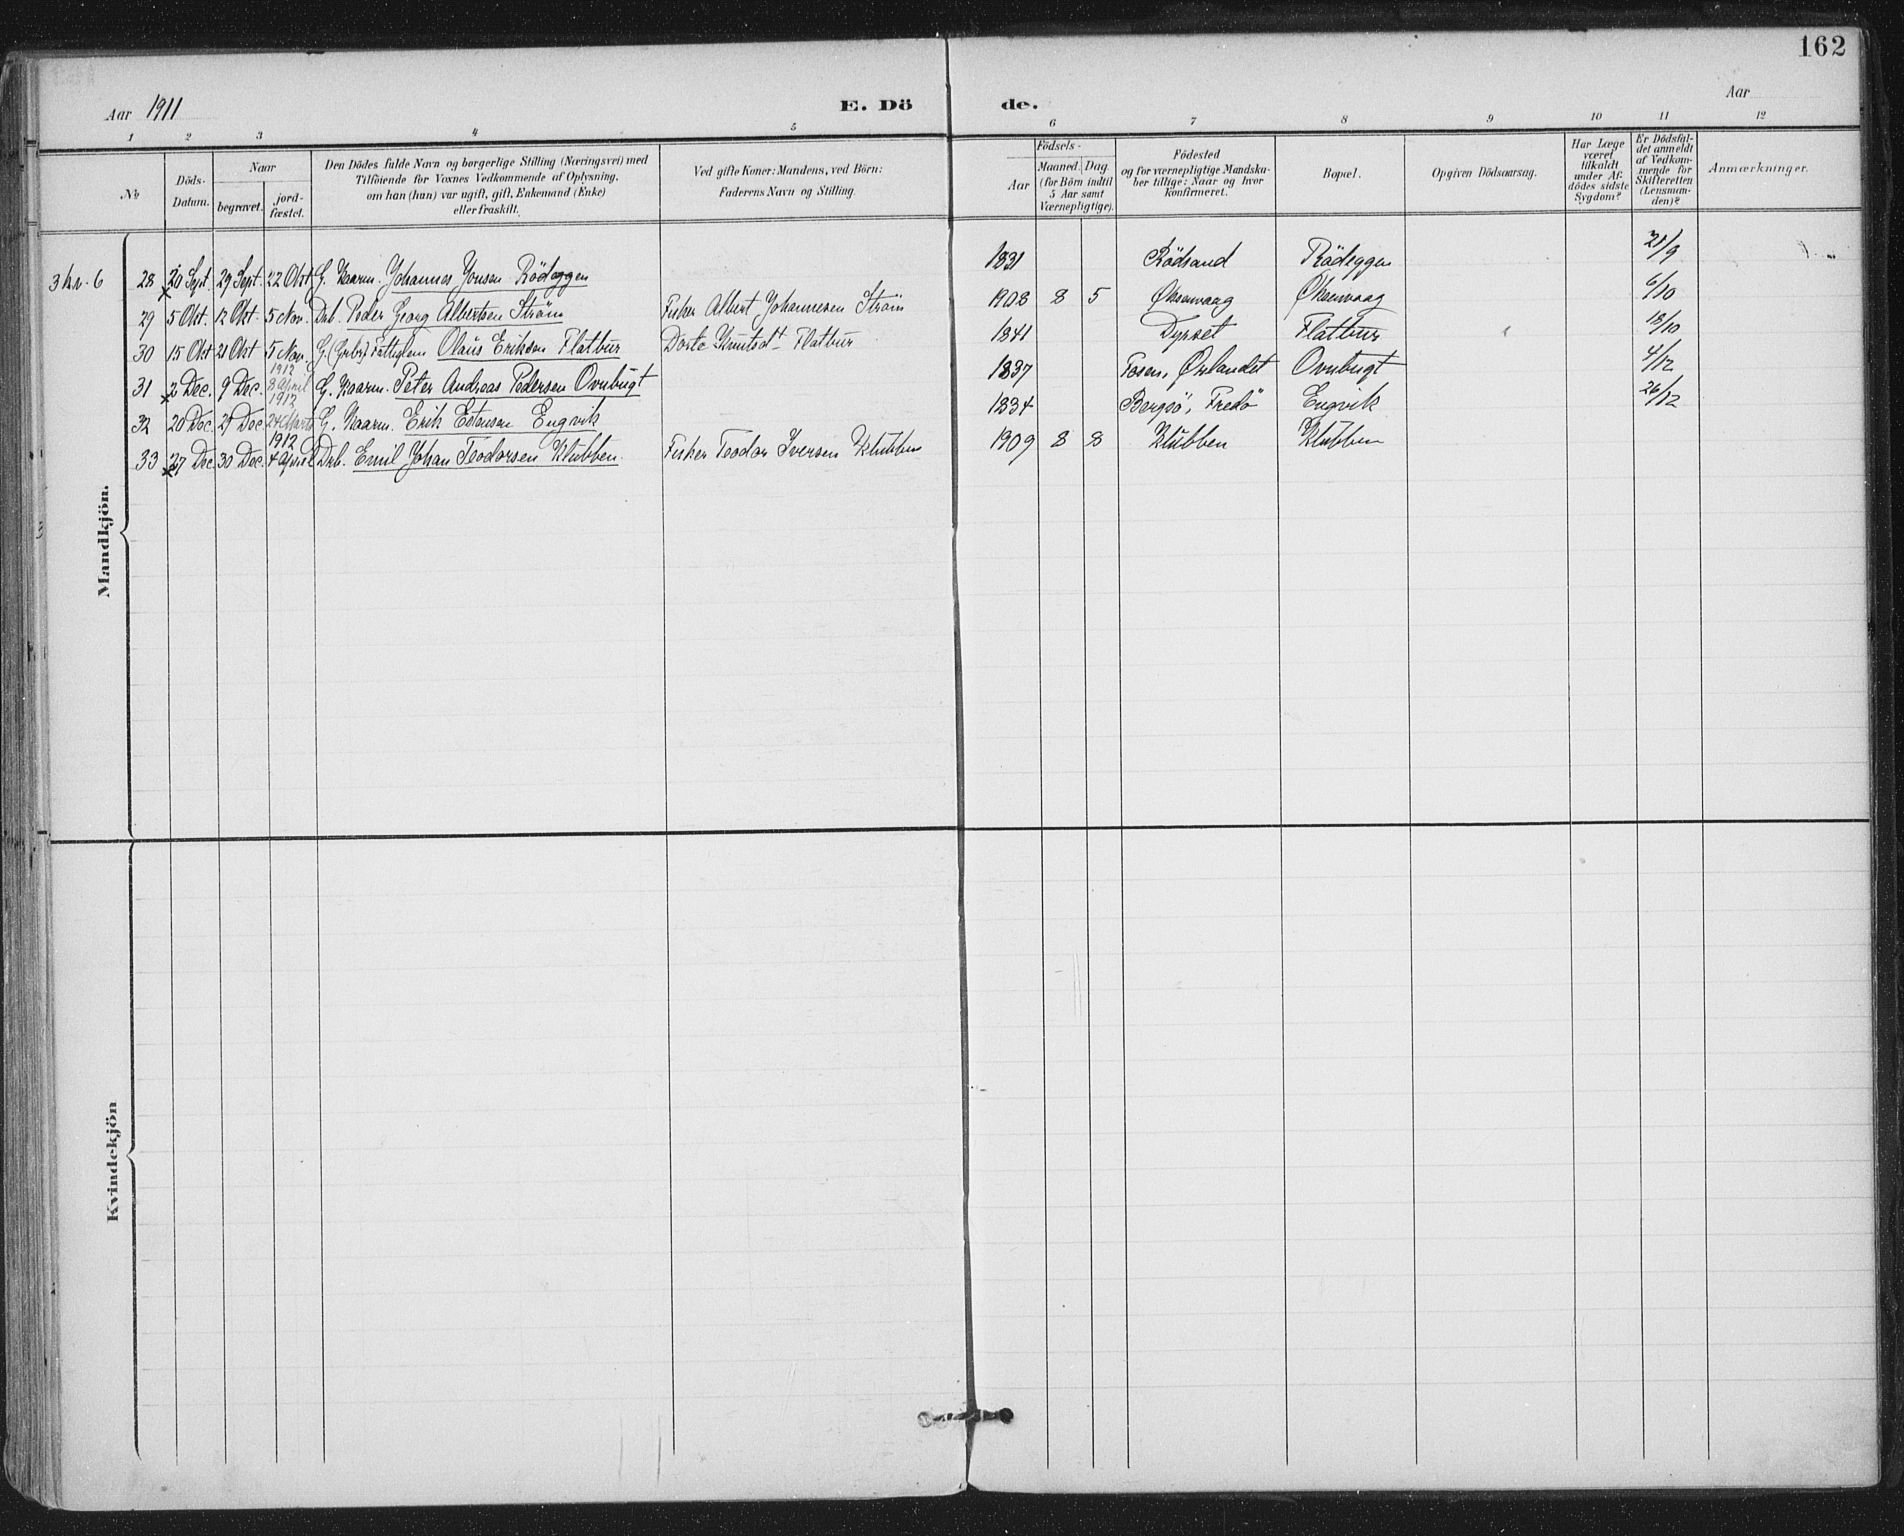 162
Aar 1911 E. Dö de. Aar
1 2 3 4 5 6 7 8 9 10 11 12
No. Döds-Datum. Naar begravet. jord-fæstet. Den Dödes fulde Navn og borgerlige Stilling (Næringsvei) med Tilföiende for Voxnes Vedkommende af Oplysning, om han (hun) var ugift, gift, Enkemand (Enke) eller fraskilt. Ved gifte Koner: Mandens, ved Börn: Faderens Navn og Stilling. Födsels- Aar Maaned. Dag. (for Börn indtil 5 Aar samt Værnepligtige). Födested og for værnepligtige Mandska-ber tillige: Naar og hvor konfirmeret. Bopæl. Opgiven Dödsaarsag. Har Læge været tilkaldt under Af-dödes sidste Sygdom? Er Dödsfal-det anmeldt af Vedkom-mende for Skifteretten (Lensman-den)? Anmærkninger.
Mandkjön.
3 kv. 6 28 20 Sept. 29 Sept. 22 Okt. G. Kaarm. Johannes Jonsen Rödeggen 1831 Rödsand Rödeggen 21/9
29 5 Okt. 12 Okt. 5 Nov. Drb. Peder Georg Albertsen Ström Fisker Albert Johannesen Ström 1908 8 5 Øksenvaag Øksenvaag 6/10
30 15 Okt 21 Okt 5 Nov. G. Fattiglem Olaus Eriksen Flatbur Dorte Knutsdt Flatbur 1841 Dyrset Flatbur 18/10
31 2 Dec. 9 Dec. 1912 8 April G. Kaarm. Peter Andreas Pedersen Ovnbugt 1837 Fosen, Ørlandet Ovnbugt 4/12
32 20 Dec 29 Dec 1912 24 Marts G. Kaarm. Erik Estensen Engvik 1834 Bergsö, Fredö Engvik 26/12
33 27 Dec. 30 Dec. 1912 4 April Drb. Emil Johan Teodorsen Klubben. Fisker Teodor Iversen Klubben 1909 8 8 Klubben Klubben
Kvindekjön